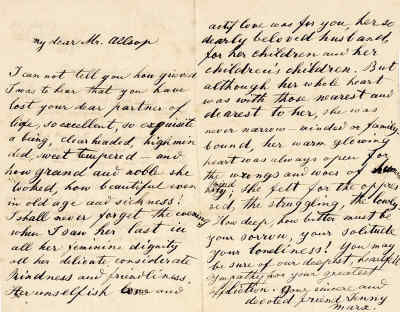 my dear Mr. Allsop
I can not tell you how grieved
I was to hear that you have
lost your dear partner of
life, so excellent, so exquisite
a being, clearheaded, highmin
ded, sweet tempered – and
how grand and noble she
looked, how beautiful even
in old age and sickness!
I shall never forget the evening
when I saw her last in
all her feminine dignity
all her delicate considerate
kindness and friendliness.
Her unselfish love and
active love was for you, her so
dearly beloved husband,
for her children and her
children's children. But
although her whole heart
was with those nearest and
dearest to her, she was
never narrow-minded or family
bound, her warm glowing
heart was always open for
the wrongs and woes of
She felt for the oppres
sed, the struggling, the lowly
How deep, how bitter must be
your sorrow, your solitude
your loneliness! You may
be sure of our deepest, heartfelt
sympathy in your greatest
affliction. Your sincere and
devoted friend Jenny
Marx.